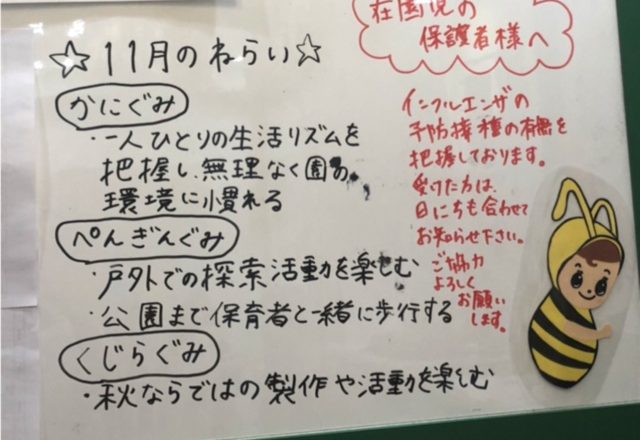 ☆11月のねらい☆
かにぐみ
・一人ひとりの生活リズムを
把握し、無理なく園の
環境に慣れる
ぺんぎんぐみ
・戸外での探索活動を楽しむ
・公園まで保育者と一緒に歩行する
くじらぐみ
・秋ならではの製作や活動を楽しむ
在園児の
保護者様へ
インフルエンザの
予防接種の有無を
把握しております。
受けた方は、
日にちも合わせて
お知らせ下さい。
ご協力
よろしく
お願い
します。